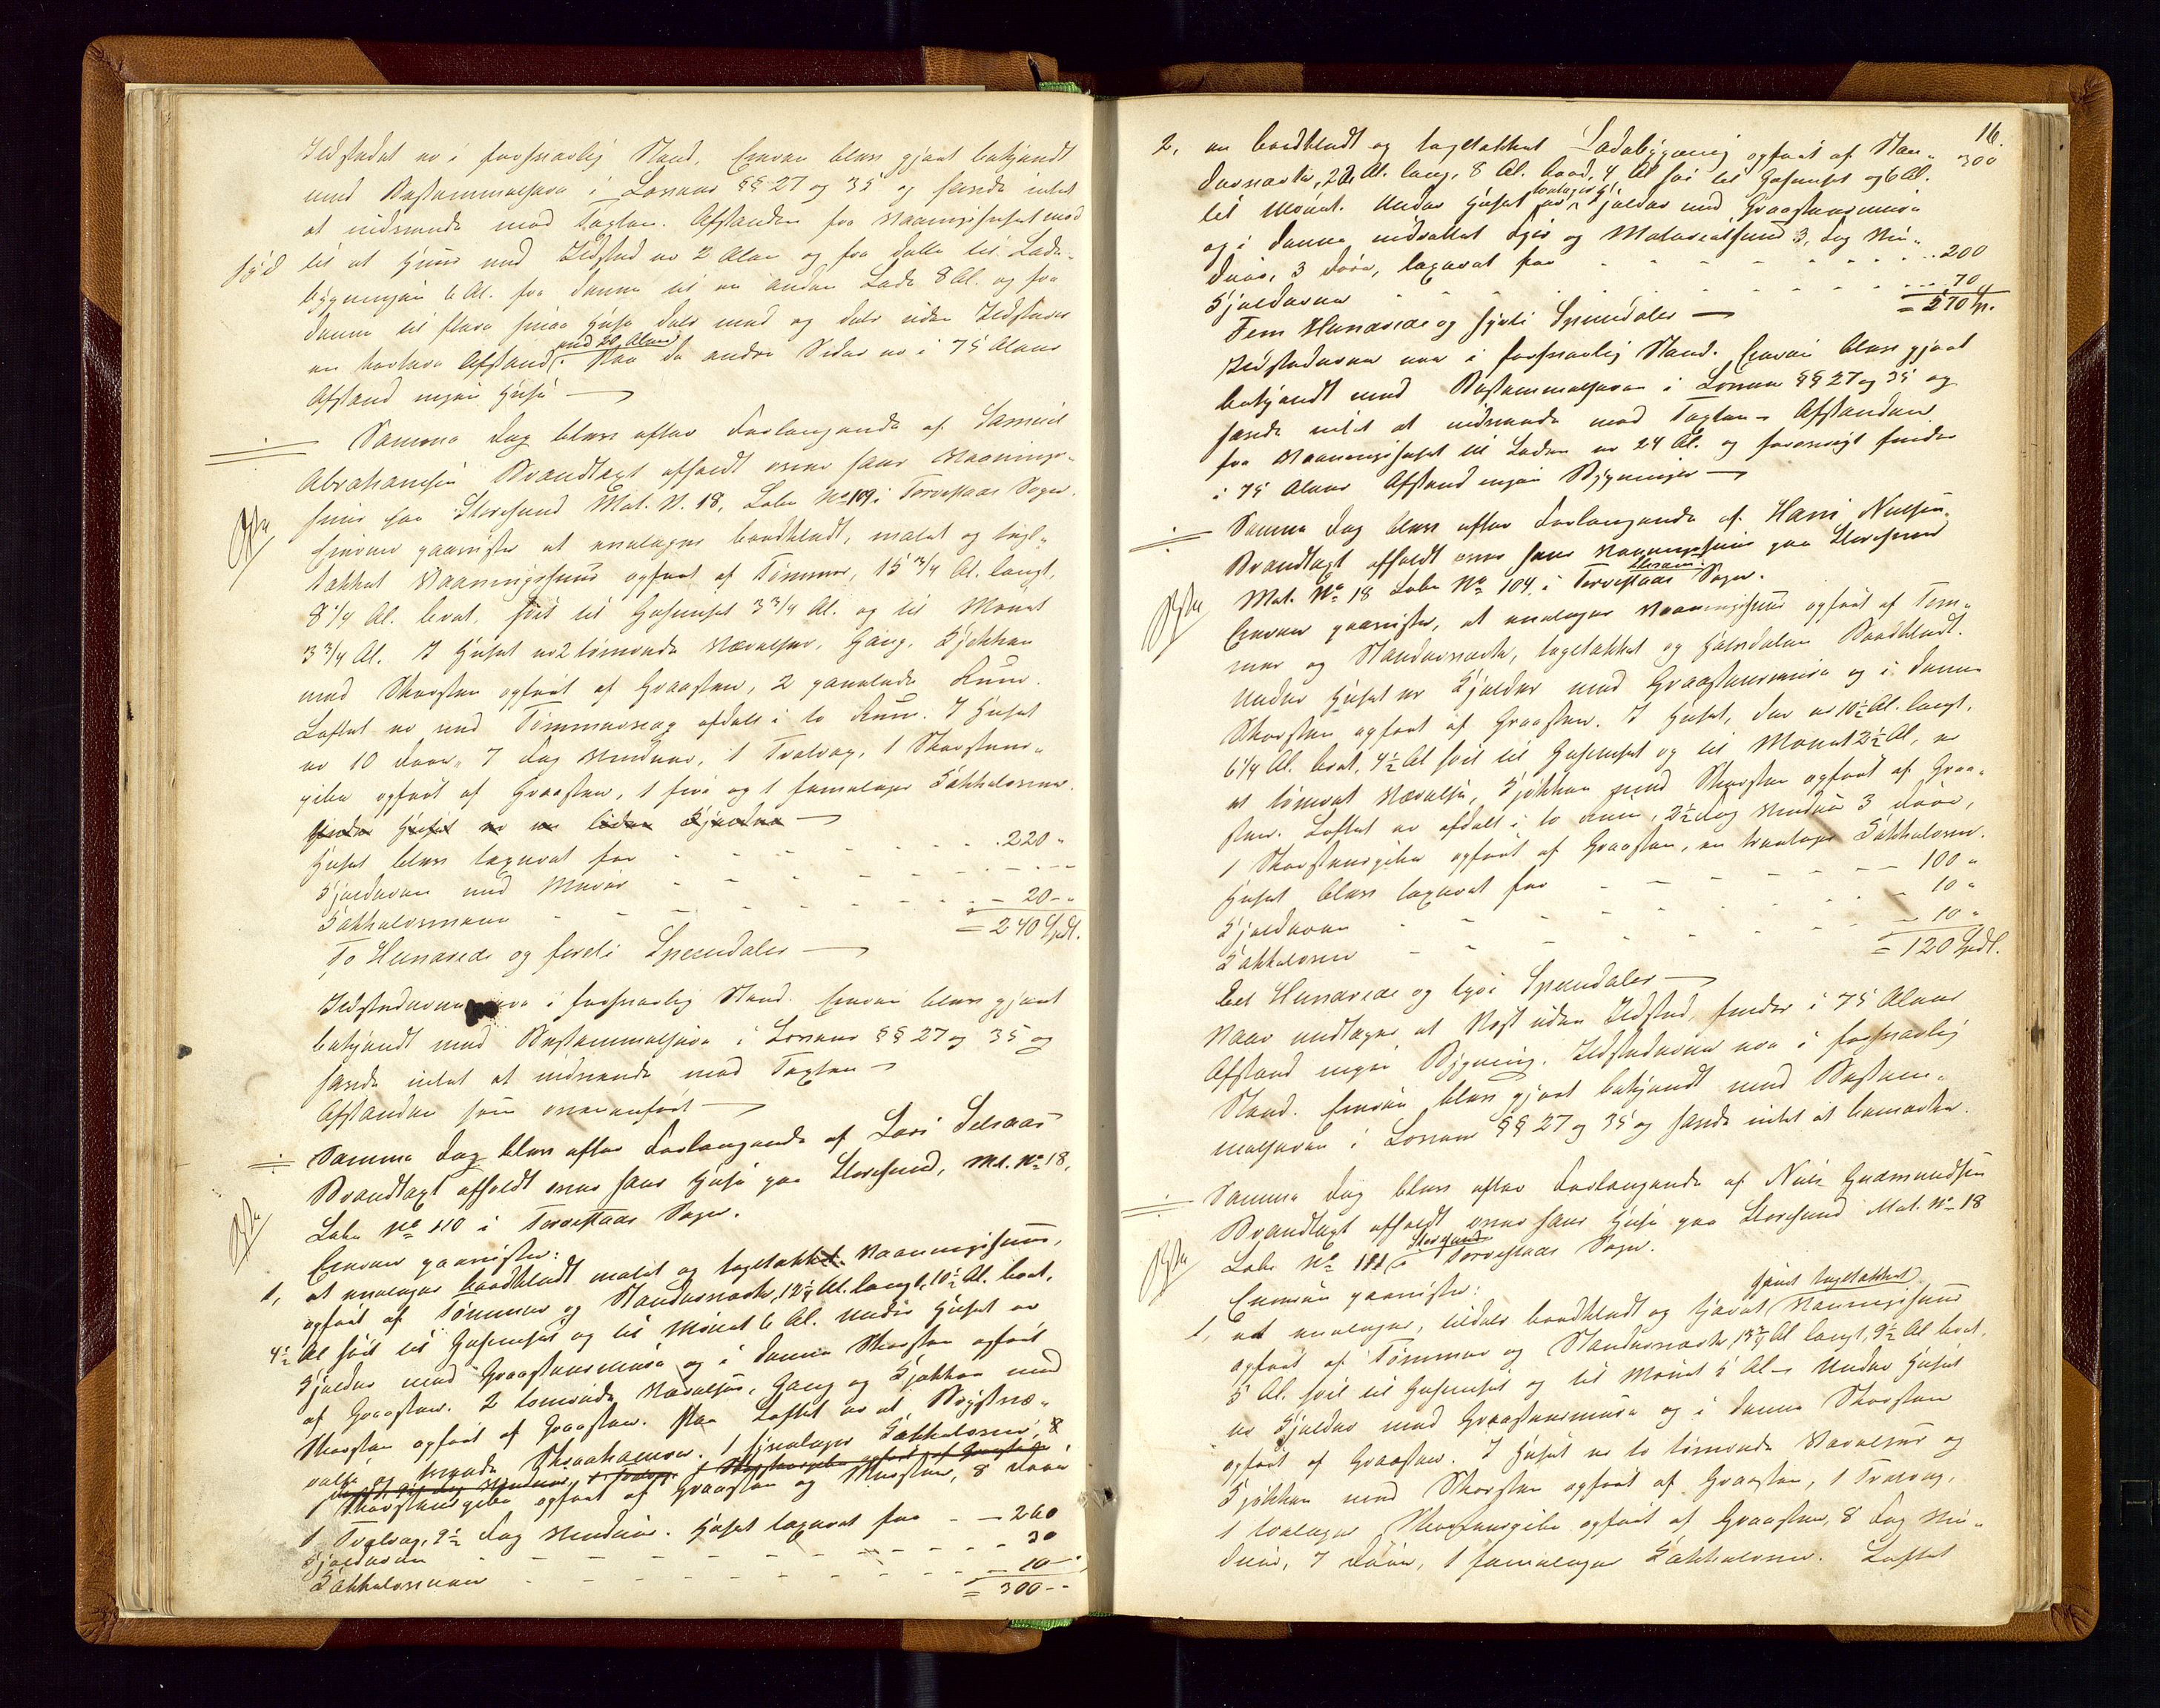 Ildstedet er i forsvarlig Stand. Eieren blev gjort bekjendt
med Bestemmelserne i Lovens §§ 27 og 35 og havde intet
at indvende mod Taxten. Afstanden fra Vaaningshuset mod
Syd til et Huus med Ildsted er 2 Alen og fra dette til Lade-
bygningen 6 Al. fra denne til en anden Lade 8 Al. og fra
denne til flere smaa Huse dels med og dels uden Ildsteder
en kortere Afstand, end 20 Alen. Paa de andre Sider er i 75 Alens
Afstand ingen Huse —
Samme Dag blev efter Forlangende af Samuel
Abrahamsen Brandtaxt afholdt over hans Vaanings-
huus paa Storesund Mat. N. 18, Løbe No 109 i Torvestads Sogn.
Eieren paaviste et enetages bordklædt, malet og tægl-
tækket Vaaningshuus opført af Tømmer, 15 3/4 Al. langt,
8 1/4 Al. bredt, høit til Gesimset 3 3/4 Al. og til Mønet
3 3/4 Al. I Huset er 2 tømrede Værelser, Gang, Kjøkken
med Skorsten opført af Graasten, 2 panelede Rum.
Loftet er med Tømmervæg afdelt i to Rum. I Huset
er 10 Døre, 7 Fag Vinduer, 1 Trælvæg, 1 Skorstens-
pibe opført af Graasten, 1 fiir og 1 femetages Kakkelovne.
Under Huset er en liden Kjælder —
Huset blev taxeret for - - - 220 "
Kjælderen med Muren - - - - -
Kakkelovnene - - - 20 - "
= 240 Spdl.
To Hundrede og førti Speciedaler —
Ildstederne ere i forsvarlig Stand. Eieren blev gjort
bekjendt med Bestemmelserne i Lovens §§ 27 og 35 og
havde intet at indvende mod Taxten —
Afstanden som ovenanført —
Samme Dag blev efter Forlangende af Lars
Brandtaxt afholdt over hans Huse paa Storesund, Mt. No 18,
Løbe No 110 i Torvestads Sogn.
Eieren paaviste:
1, et enetages bordklædt malet og tagtækket Vaaningshuus,
opført af Tømmer og Standerværk, 12 1/4 Al. langt, 10 1/2 Al. bredt,
4 1/2 Al høit til Gesimset og til Mønet 6 Al. Under Huset er
Kjelder med Graastensmure og i denne Skorsten opført
af Graasten. 2 tømrede Værelser, Gang og Kjøkken med
Skorsten opført af Graasten. Paa Loftet er et Bryst-
1 Skorstenspibe opført af Graasten og Mursten, 8 Døre
1 Trælvæg, 9 1/2 Fag Vinduer. Huset taxeret for - - 260
Kjælderen - - - 30
Kakkelovnene - - - 10 -
= 300 - -
16.
2, en bordklædt og tagtækket Ladebygning opført af Stan- 300
derværk, 22 Al. lang, 8 Al. bred, 4 Al høi til Gesimset og 6 Al.
til Mønet. Under Huset er toetages Kjelder med Graastensmure
og i denne indrettet Fjøs og 3, Fag Vin-
duer, 3 Døre, taxeret for - - - 200
Kjælderne - - - 70
= 570 Sp.
Fem Hundrede og sytti Speciedaler —
Ildstederne var i forsvarlig Stand. Eieren blev gjort
bekjendt med Bestemmelserne i Lovens §§ 27 og 35 og
havde intet at indvende mod Taxten — Afstanden
fra Vaaningshuset til Laden er 24 Al. og forøvrigt findes
i 75 Alens Afstand ingen Bygninger —
Samme Dag blev efter Forlangende af Hans Nielsen
Brandtaxt afholdt over hans Vaaningshuus paa Storesund
Mat. No 18 Løbe No 104, i Torvestads Sogn.
Eieren paaviste, et enetages Vaaningshuus opført af Tøm-
mer og Standerværk, tagtækket og halvdelen Bordklædt.
Under Huset er Kjelder med Graastensmure og i denne
Skorsten opført af Graasten. I Huset, der er 10 1/2 Al. langt,
6 1/4 Al. bredt, 4 1/2 Al høit til Gesimset og til Mønet 2 1/2 Al, er
et tømret Værelse, Kjøkken med Skorsten opført af Graa-
sten. Loftet er afdelt i to Rum, 2 1/2 Fag Vinduer 3 Døre,
1 Skorstenspibe opført af Graasten, en treetages Kakkelovn.
Huset blev taxeret for - - - 100 "
Kjælderen - - - 10 "
Kakkelovn - - - 10 "
= 120 Spdl.
Eet Hundrede og tyve Speciedaler —
Naar undtages et Nøst uden Ildsted, findes i 75 Alens
Afstand ingen Bygning. Ildstederne var i forsvarlig
Stand. Eieren blev gjort bekjendt med Bestem-
melserne i Lovens §§ 27 og 35 og havde intet at bemærke.
Samme Dag blev efter Forlangende af Niels Gudmundsen
Brandtaxt afholdt over hans Huse paa Storesund Mat. No 18
Løbe No 111, i Torvestads Sogn.
Eieren paaviste:
1, et enetages, tildels bordklædt og tjæret samt tagtækket Vaaningshuus
opført af Tømmer og Standerværk, 13 3/4 Al langt, 9 1/2 Al bredt,
5 Al. høit til Gesimset og til Mønet 5 Al — Under Huset
er Kjelder med Graastensmure og i denne Skorsten
opført af Graasten. I Huset er to tømrede Værelser og
Kjøkken med Skorsten opført af Graasten, 1 Trælvæg,
1 toetages Skorstenspibe opført af Graasten, 8 Fag Vin-
duer, 7 Døre, 1 femetages Kakkelovn. Loftet